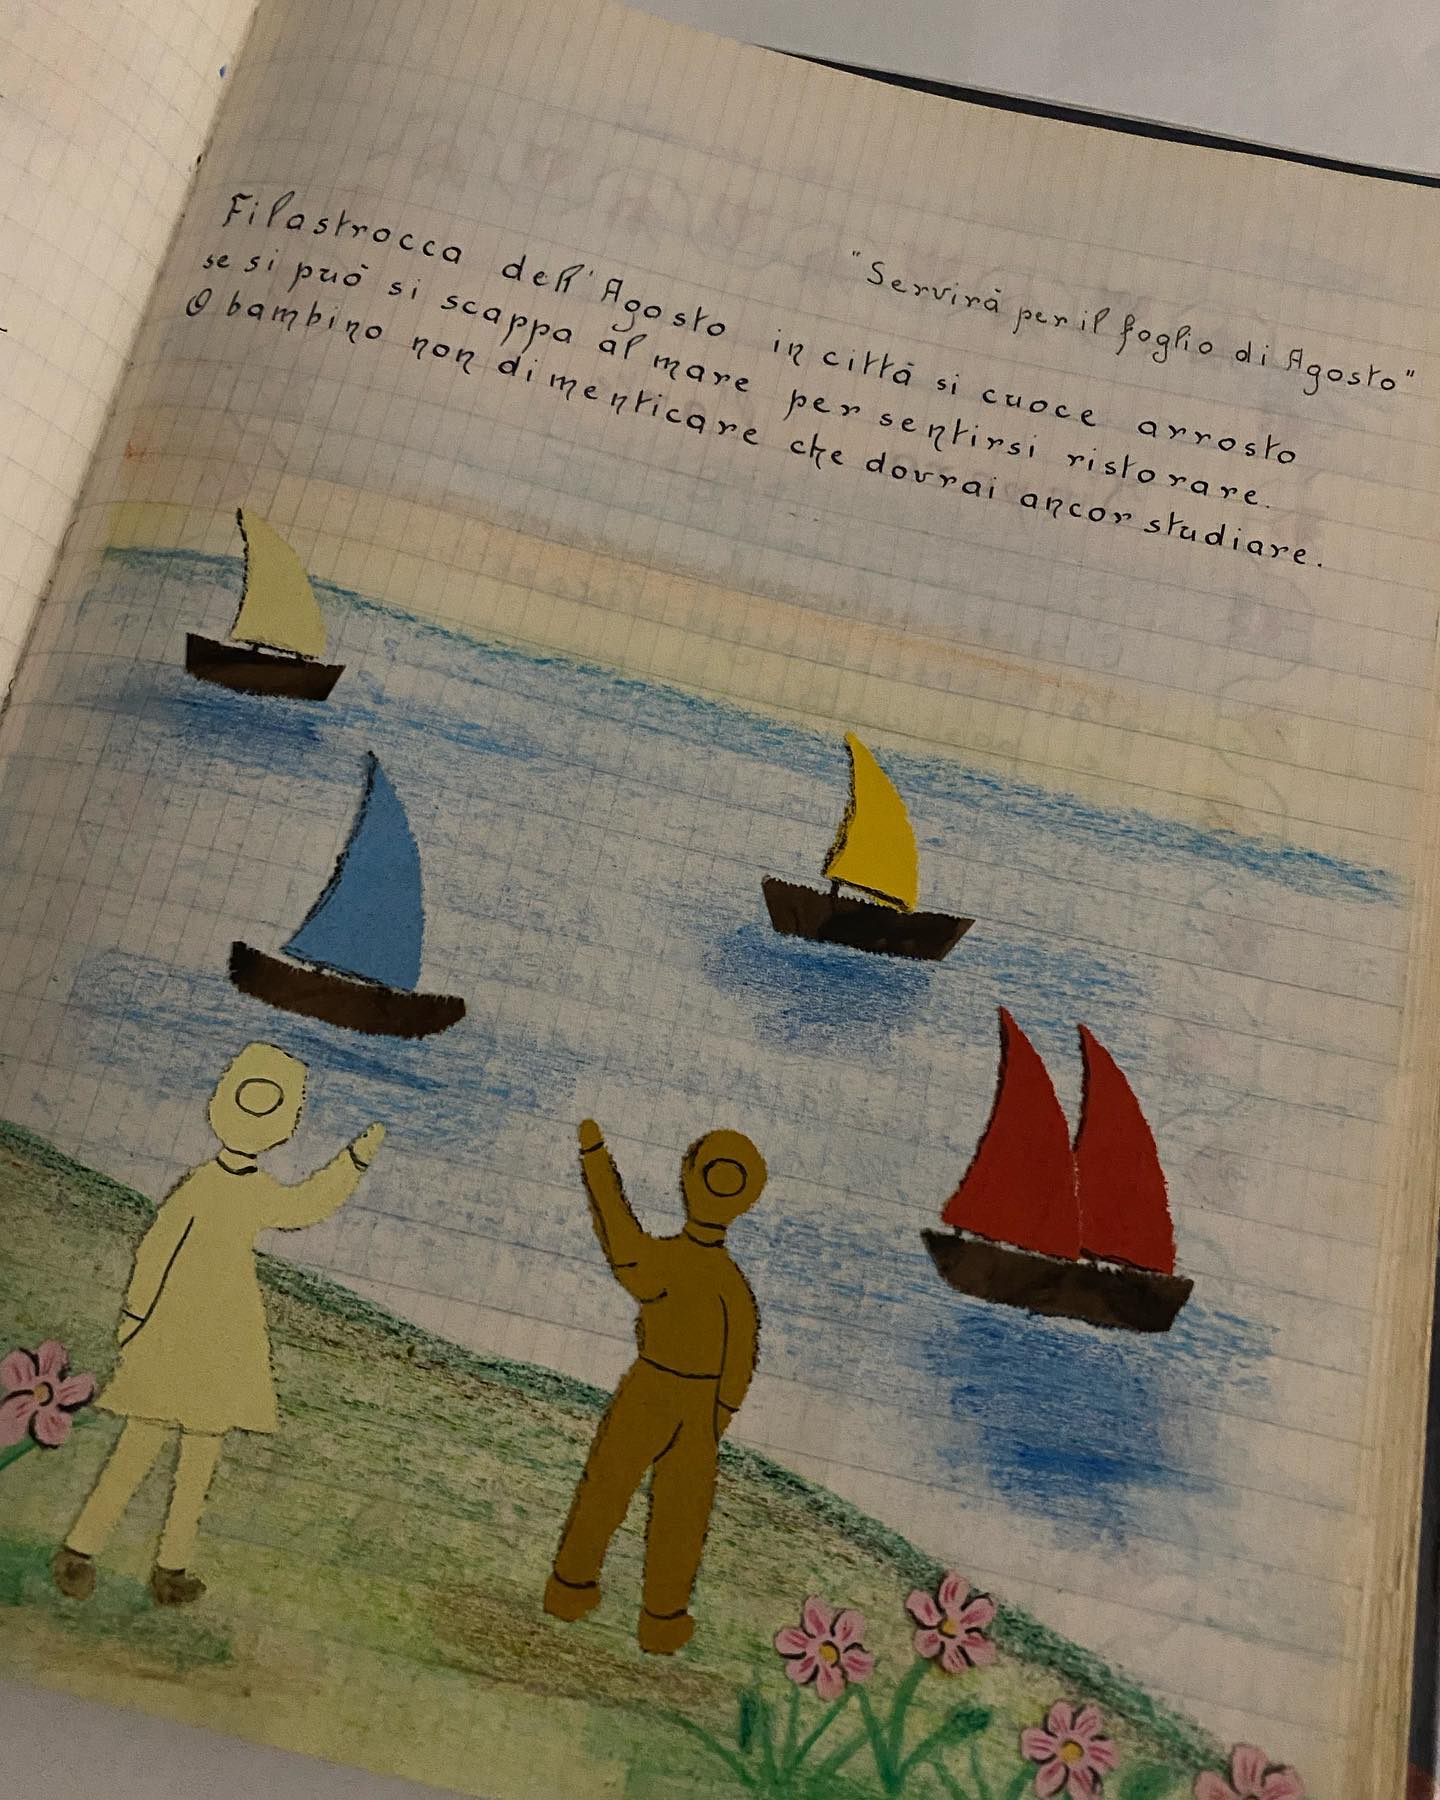 "Servirà per il foglio di Agosto"
Filastrocca dell'Agosto in città si cuoce arrosto
se si può si scappa al mare per sentirsi ristorare.
O bambino non dimenticare che dovrai ancor studiare.